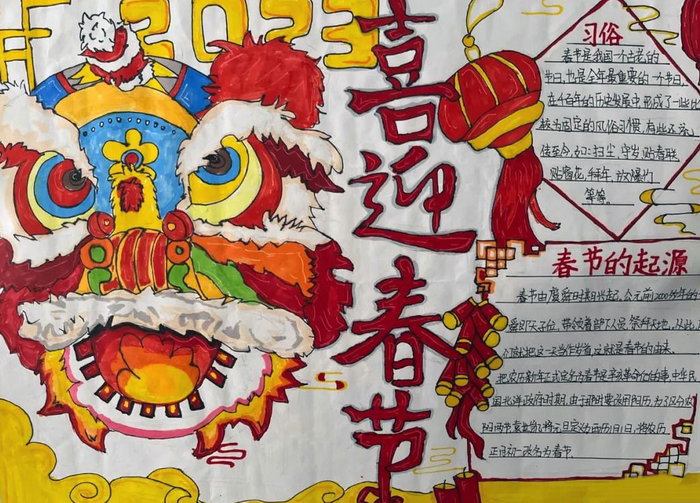 2023
喜迎春节
习俗
春节是我国一个古老的
节日,也是全年最重要的一个节日,
在千百年的历史发展中,形成了一些
较为固定的风俗习惯,有些还
传至今,如:扫尘,守岁,贴春联,
贴窗花,拜年,放爆竹
等等。
春节的起源
春节由虞舜时期兴起,公元前2000多年的
舜即天子位,带领着部下人员,祭拜天地,从此
人们就把这一天当作岁首
把农历新年正式定名为春节是辛亥革命
因北洋政府时期,由于那时要改用阳历,为了区分
阳历1月1日,将农历
正月初一改名为春节.